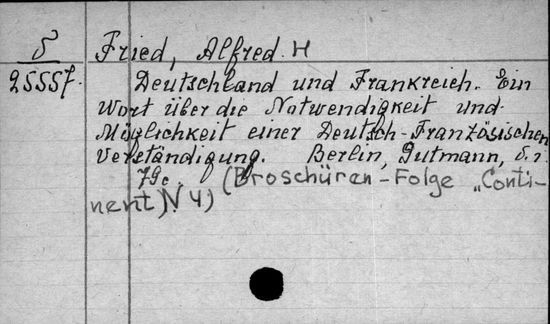 Б Fried, Alfred H
25557. Deutschland und Frankreich. Ein
Wort über die Notwendigkeit und
Möglichkeit einer Deutsch-Französischen
Verständigung. Berlin, Gutmann, s.
79c. (Broschüren-Folge „Conti-
nent) N 4)